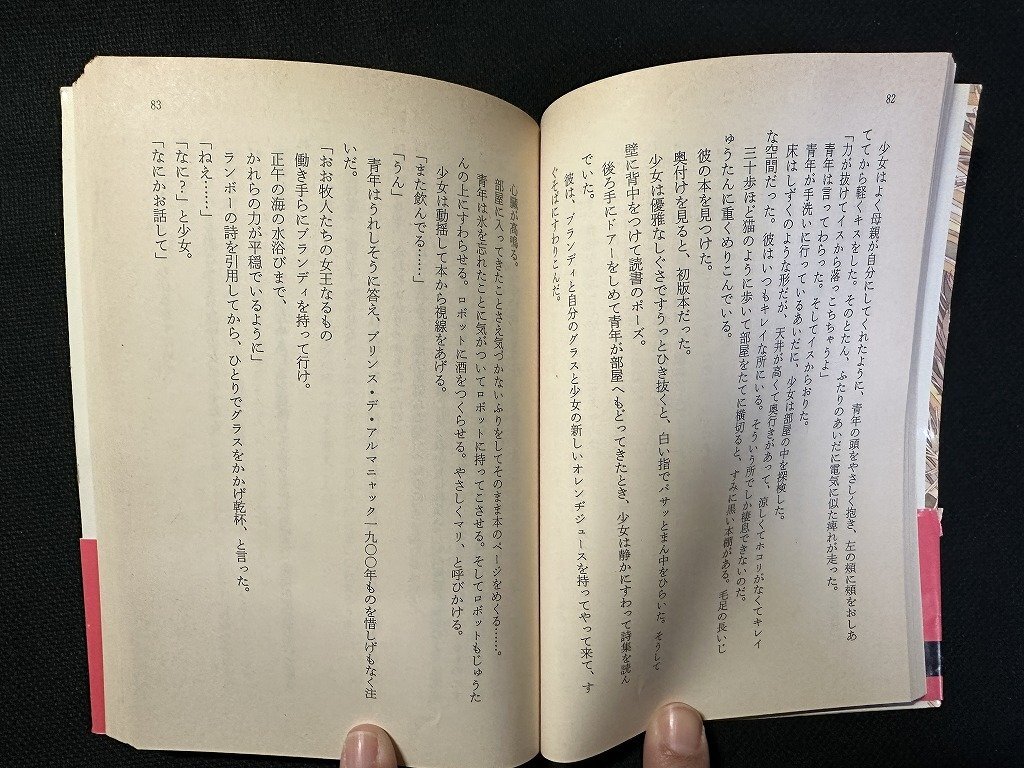 82
少女はよく母親が自分にしてくれたように、青年の頭をやさしく抱き、左の頬に頬をおしあ
ててから軽くキスをした。そのとたん、ふたりのあいだに電気に似た痺れが走った。
「力が抜けてイスから落っこちゃうよ」
青年は言ってわらった。そしてイスからおりた。
青年が手洗いに行っているあいだに、少女は部屋の中を探検した。
床はしずくのような形だが、天井が高くて奥行きがあって、涼しくてホコリがなくてキレイ
な空間だった。彼はいつもキレイな所にいる。そういう所でしか棲息できないのだ。
三十歩ほど猫のように歩いて部屋をたてに横切ると、すみに黒い本棚がある。毛足の長いじ
ゅうたんに重くめりこんでいる。
彼の本を見つけた。
奥付けを見ると、初版本だった。
少女は優雅なしぐさですうっとひき抜くと、白い指でバサッとまん中をひらいた。そうして
壁に背中をつけて読書のポーズ。
後ろ手にドアーをしめて青年が部屋へもどってきたとき、少女は静かにすわって詩集を読ん
でいた。
彼は、ブランディと自分のグラスと少女の新しいオレンヂジュースを持ってやって来て、す
ぐそばにすわりこんだ。
83
心臓が高鳴る。
部屋に入ってきたことさえ気づかないふりをしてそのまま本のページをめくる……。
青年は氷を忘れたことに気がついてロボットに持ってこさせる。そしてロボットもじゅうた
んの上にすわらせる。ロボットに酒をつくらせる。やさしくマリ、と呼びかける。
少女は動揺して本から視線をあげる。
「また飲んでる……」
「うん」
青年はうれしそうに答え、プリンス・デ・アルマニャック一九〇〇年ものを惜しげもなく注
いだ。
「おお牧人たちの女王なるもの
働き手らにブランディを持って行け。
正午の海の水浴びまで、
かれらの力が平穏でいるように」
ランボーの詩を引用してから、ひとりでグラスをかかげ乾杯、と言った。
「ねえ……」
「なに？」と少女。
「なにかお話して」